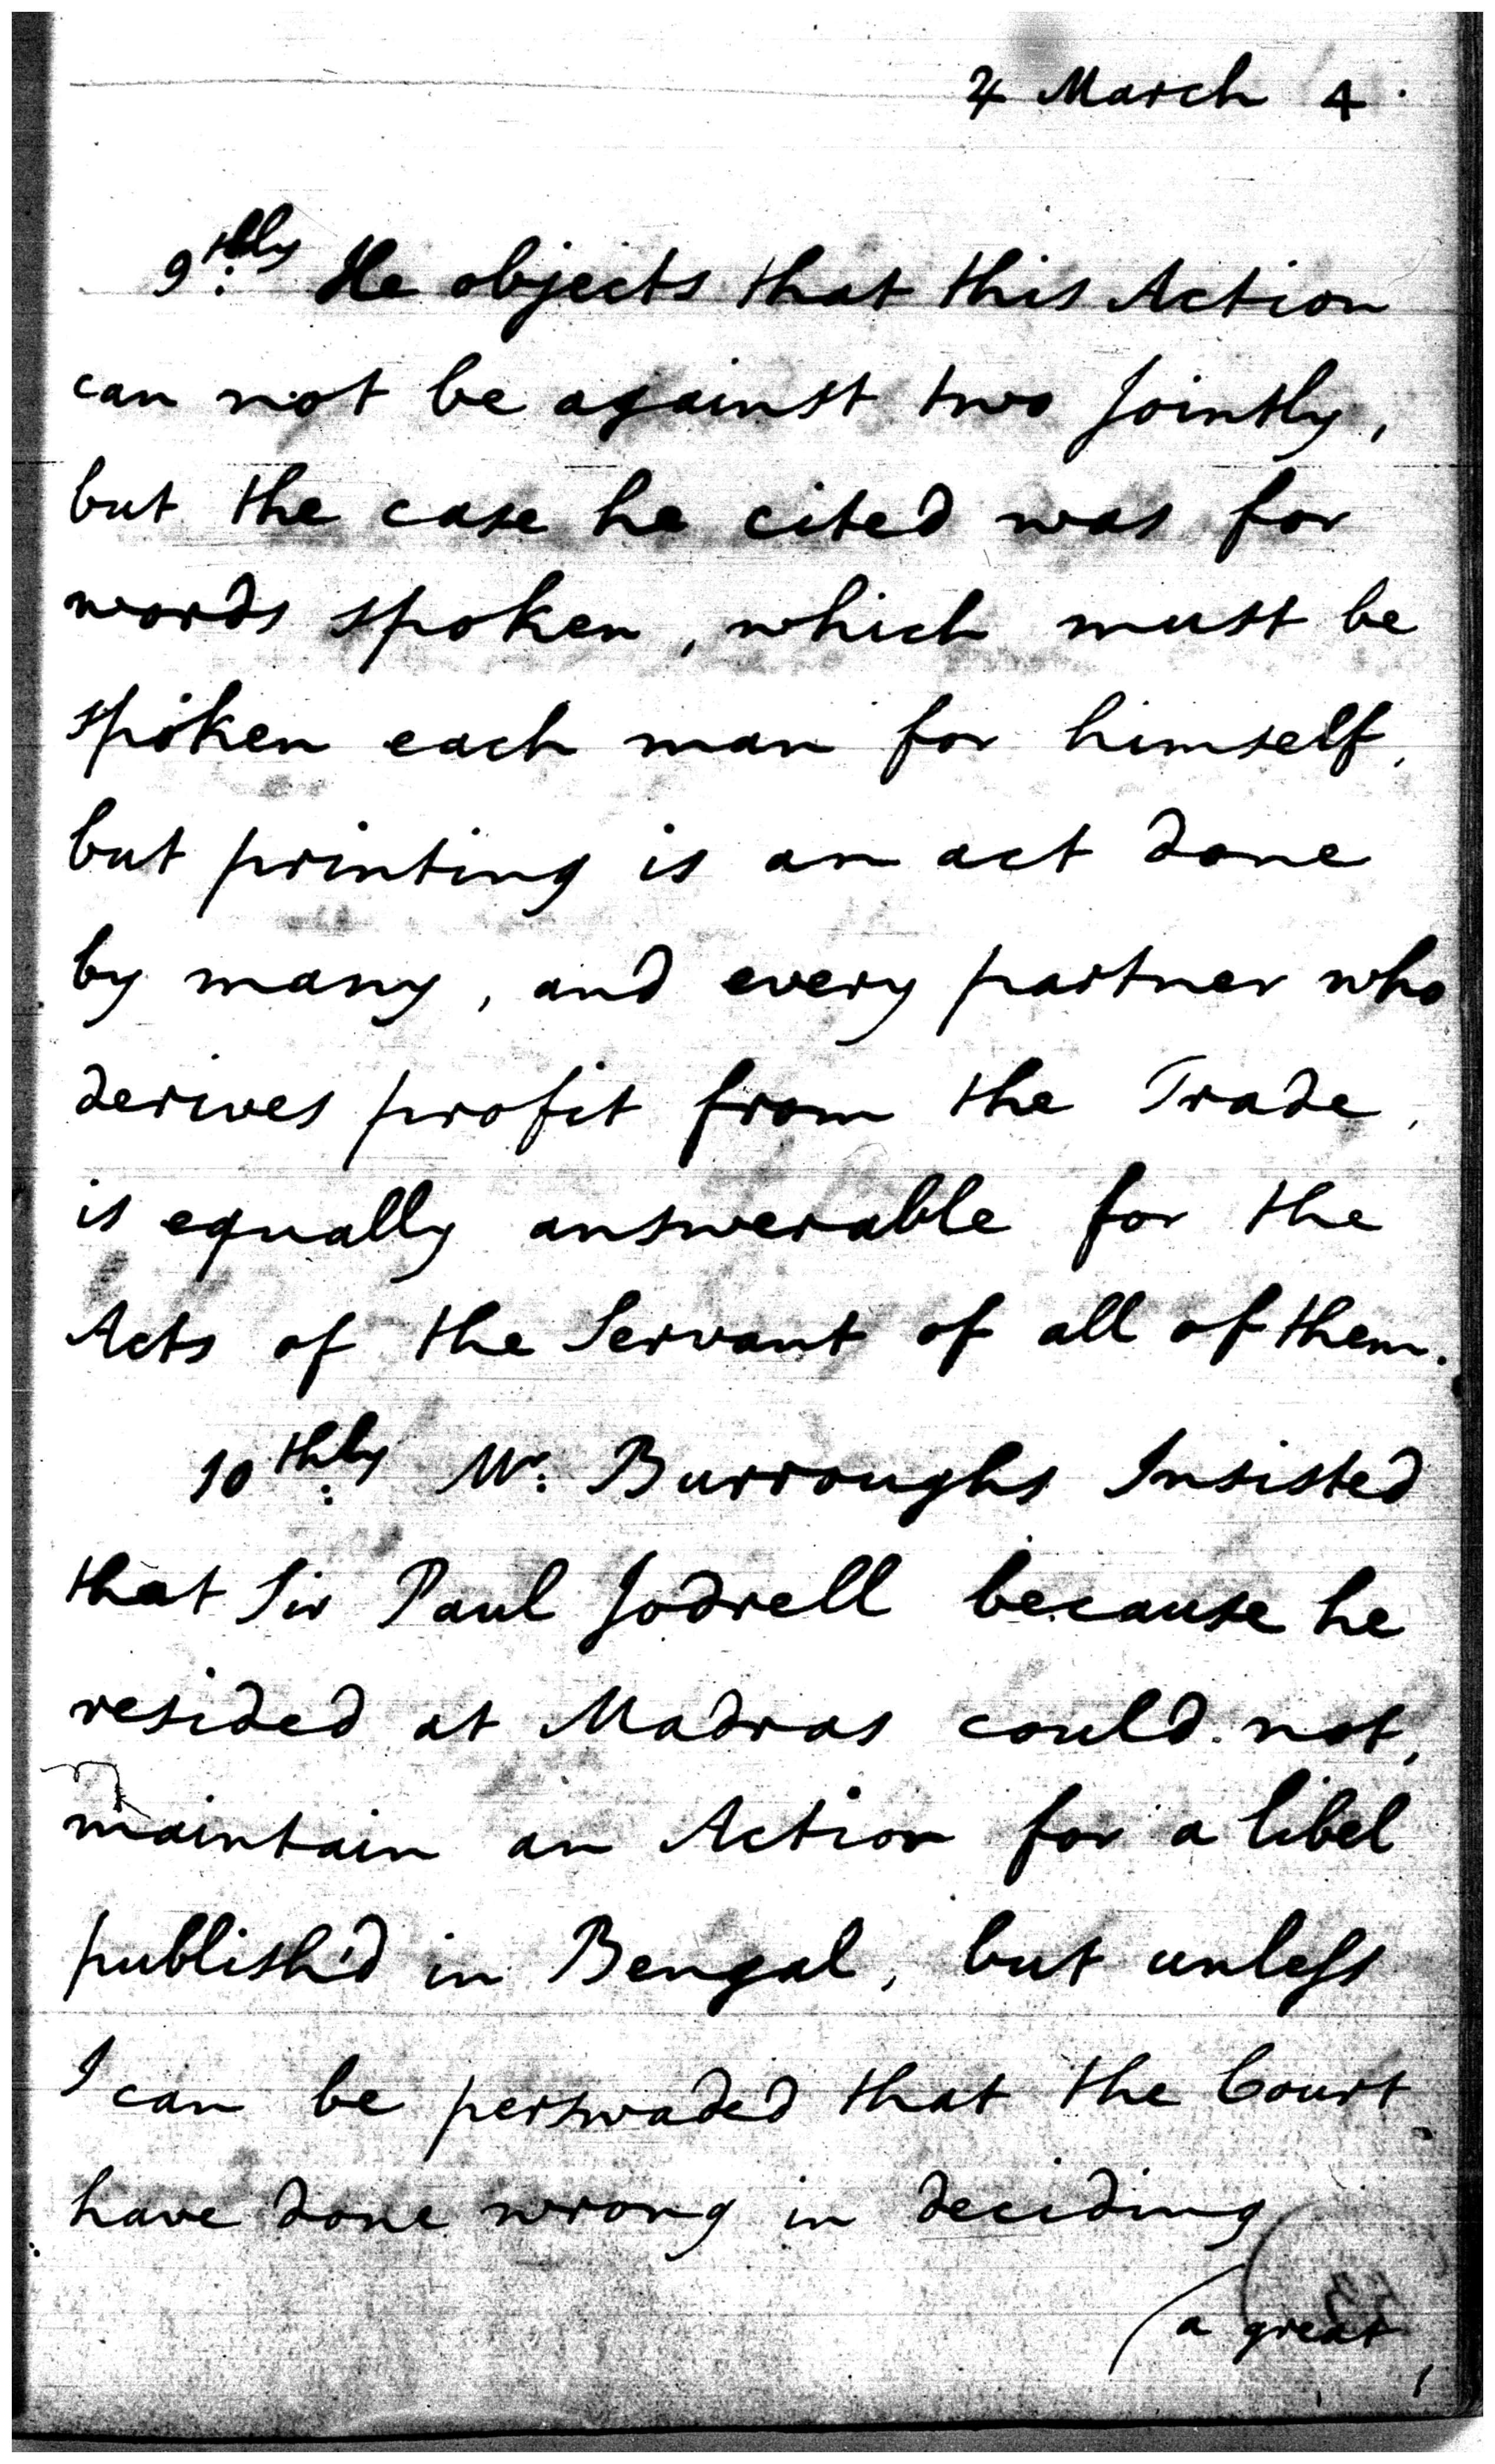 ♃ March 4.
9.thly He objects that this Action
can not be against two Jointly,
but the case he cited was for
words spoken, which must be
spoken each man for himself,
but printing is an act done
by many, and every partner who
derives profit from the Trade,
is equally answerable for the
Acts of the Servant of all of them.
10.thly Mr. Burroughs Insisted
that Sir Paul Jodrell because he
resided at Madras could not,
maintain an Action for a libel
publish'd in Bengal, but unless
I can be perswaded that the Court
have done wrong in deciding
(a great